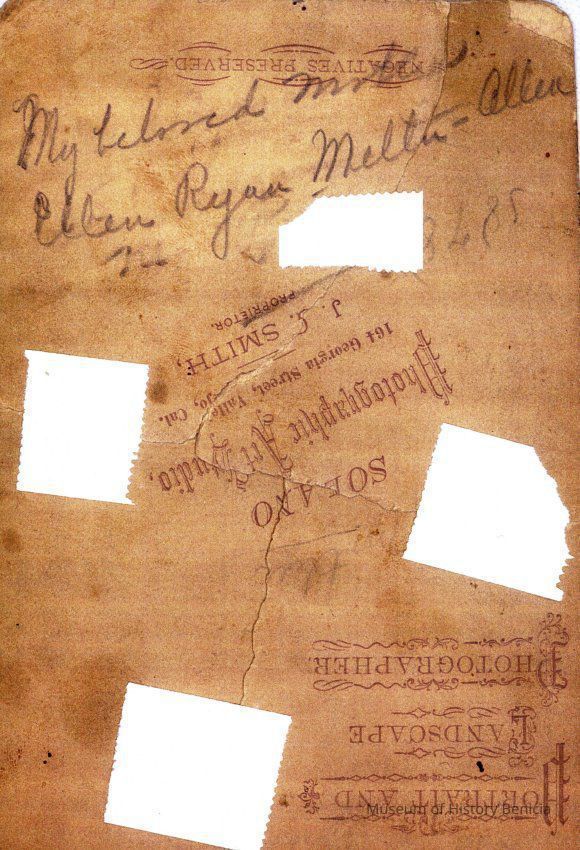 My beloved mother
Ellen Ryan Melter-Allen
SOLANO
Photographic Art Studio,
164 Georgia Street, Vallejo, Cal.
J. L. SMITH,
PROPRIETOR.
PORTRAIT AND
LANDSCAPE
PHOTOGRAPHER.
NEGATIVES PRESERVED.
Museum of History Benicia